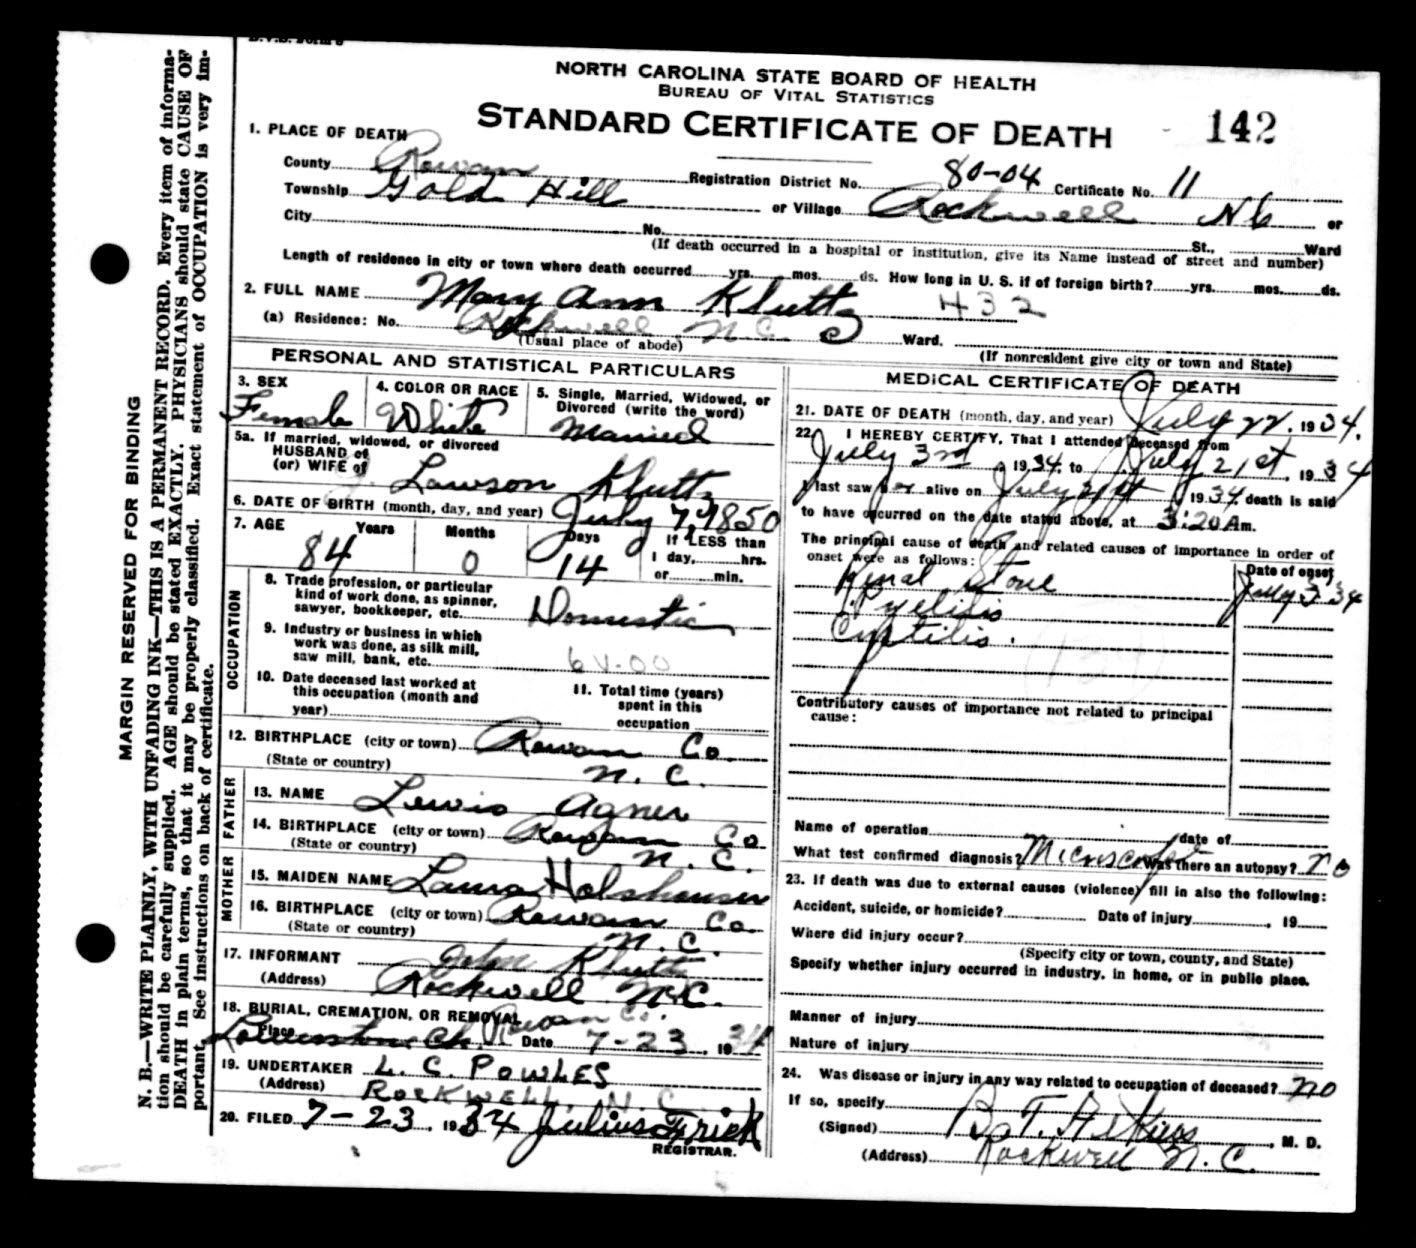 NORTH CAROLINA STATE BOARD OF HEALTH
BUREAU OF VITAL STATISTICS
STANDARD CERTIFICATE OF DEATH 142
1. PLACE OF DEATH
County Rowan Registration District No. 80-04 Certificate No. 11
Township Gold Hill or Village Rockwell NC or
City No. St., Ward
(If death occurred in a hospital or institution, give its Name instead of street and number)
Length of residence in city or town where death occurred yrs. mos. ds. How long in U. S. if of foreign birth? yrs. mos. ds.
2. FULL NAME Mary Ann Kluttz 432
(a) Residence: No. Rockwell N.C. Ward.
(Usual place of abode) (If nonresident give city or town and State)
PERSONAL AND STATISTICAL PARTICULARS
3. SEX Female
4. COLOR OR RACE White
5. Single, Married, Widowed, or Divorced (write the word) Married
5a. If married, widowed, or divorced
HUSBAND of
(or) WIFE of J. Lawson Kluttz
6. DATE OF BIRTH (month, day, and year) July 7, 1850
7. AGE Years Months Days If LESS than
84 0 14 1 day, hrs.
or min.
OCCUPATION
8. Trade profession, or particular
kind of work done, as spinner,
sawyer, bookkeeper, etc. Domestic
9. Industry or business in which
work was done, as silk mill,
saw mill, bank, etc. 6V-00
10. Date deceased last worked at
this occupation (month and
year)
11. Total time (years)
spent in this
occupation
12. BIRTHPLACE (city or town) Rowan Co.
(State or country) N. C.
FATHER
13. NAME Lewis Agner
14. BIRTHPLACE (city or town) Rowan Co.
(State or country) N. C.
MOTHER
15. MAIDEN NAME Laura Holshouser
16. BIRTHPLACE (city or town) Rowan Co.
(State or country) N. C.
17. INFORMANT John Kluttz
(Address) Rockwell N.C.
18. BURIAL, CREMATION, OR REMOVAL Rowan Co.
Place Ch. Date 7-23, 1934
19. UNDERTAKER L. C. POWLES
(Address) ROCKWELL, N. C.
20. FILED 7-23, 1934 Julius Frick
REGISTRAR.
MEDICAL CERTIFICATE OF DEATH
21. DATE OF DEATH (month, day, and year) July 22, 1934.
22. I HEREBY CERTIFY, That I attended deceased from
July 3rd, 1934, to July 21st, 1934
I last saw her alive on July 21st 1934, death is said
to have occurred on the date stated above, at 3:20 A m.
The principal cause of death and related causes of importance in order of
onset were as follows: Date of onset
Renal Stone July 3 34
Pyelitis
Cystitis.
Contributory causes of importance not related to principal
cause:
Name of operation date of
What test confirmed diagnosis? Microscopist Was there an autopsy? no
23. If death was due to external causes (violence) fill in also the following:
Accident, suicide, or homicide? Date of injury , 19
Where did injury occur?
(Specify city or town, county, and State)
Specify whether injury occurred in industry, in home, or in public place.
Manner of injury
Nature of injury
24. Was disease or injury in any way related to occupation of deceased? no
If so, specify
(Signed) , M. D.
(Address) Rockwell N. C.
MARGIN RESERVED FOR BINDING
N. B.—WRITE PLAINLY, WITH UNFADING INK—THIS IS A PERMANENT RECORD. Every item of informa-
tion should be carefully supplied. AGE should be stated EXACTLY. PHYSICIANS should state CAUSE OF
DEATH in plain terms, so that it may be properly classified. Exact statement of OCCUPATION is very im-
portant. See instructions on back of certificate.